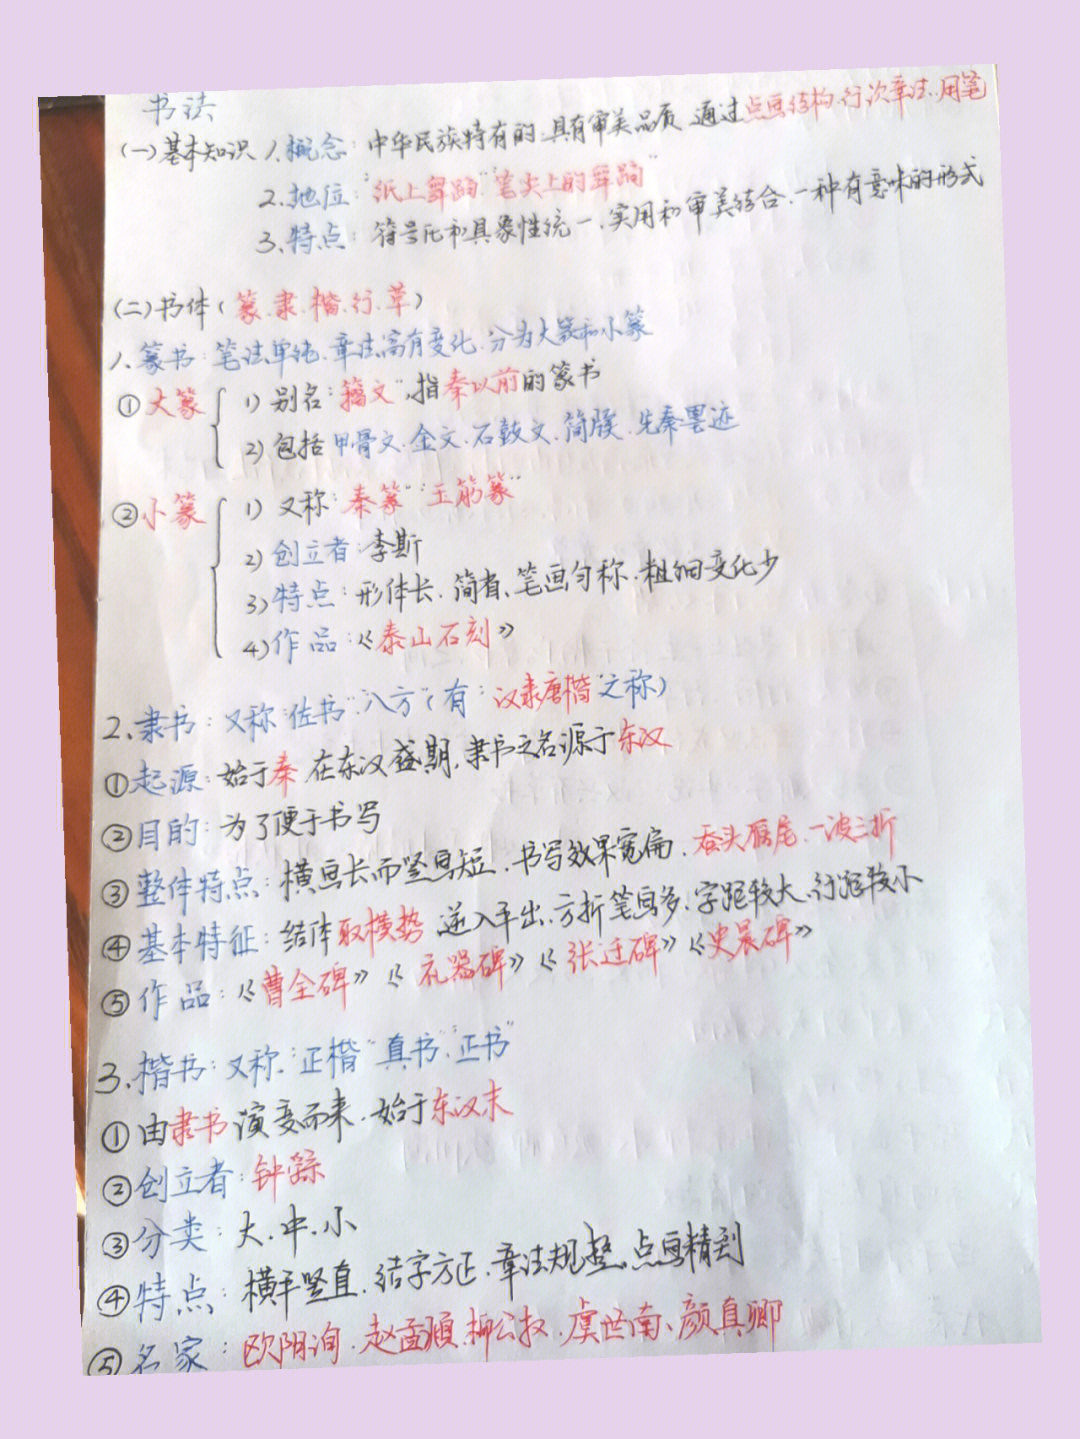 书法
(一)基本知识 1、概念：中华民族特有的、具有审美品质 通过点画结构、行次章法、用笔
2、地位："纸上舞蹈""笔尖上的舞蹈"
3、特点：符号化和具象性统一、实用和审美结合、一种有意味的形式
(二)书体(篆、隶、楷、行、草)
1、篆书：笔法单纯、章法富有变化、分为大篆和小篆
①大篆 1) 别名："籀文"，指秦以前的篆书
2) 包括甲骨文、金文、石鼓文、简牍、先秦墨迹
②小篆 1) 又称："秦篆""玉筋篆"
2) 创立者：李斯
3) 特点：形体长、简省、笔画匀称、粗细变化少
4) 作品：《泰山石刻》
2、隶书：又称"佐书"、"八方"(有"汉隶唐楷"之称)
①起源：始于秦 在东汉盛期，隶书之名源于东汉
②目的：为了便于书写
③整体特点：横画长而竖画短、书写效果宽扁、蚕头雁尾、一波三折
④基本特征：结体取横势 逆入平出、方折笔画多、字距较大、行距较小
⑤作品：《曹全碑》《礼器碑》《张迁碑》《史晨碑》
3、楷书：又称、"正楷""真书"、"正书"
①由隶书演变而来、始于东汉末
②创立者：钟繇
③分类：大、中、小
④特点：横平竖直、结字方正、章法规整、点画精到
⑤名家：欧阳询、赵孟頫、柳公权、虞世南、颜真卿